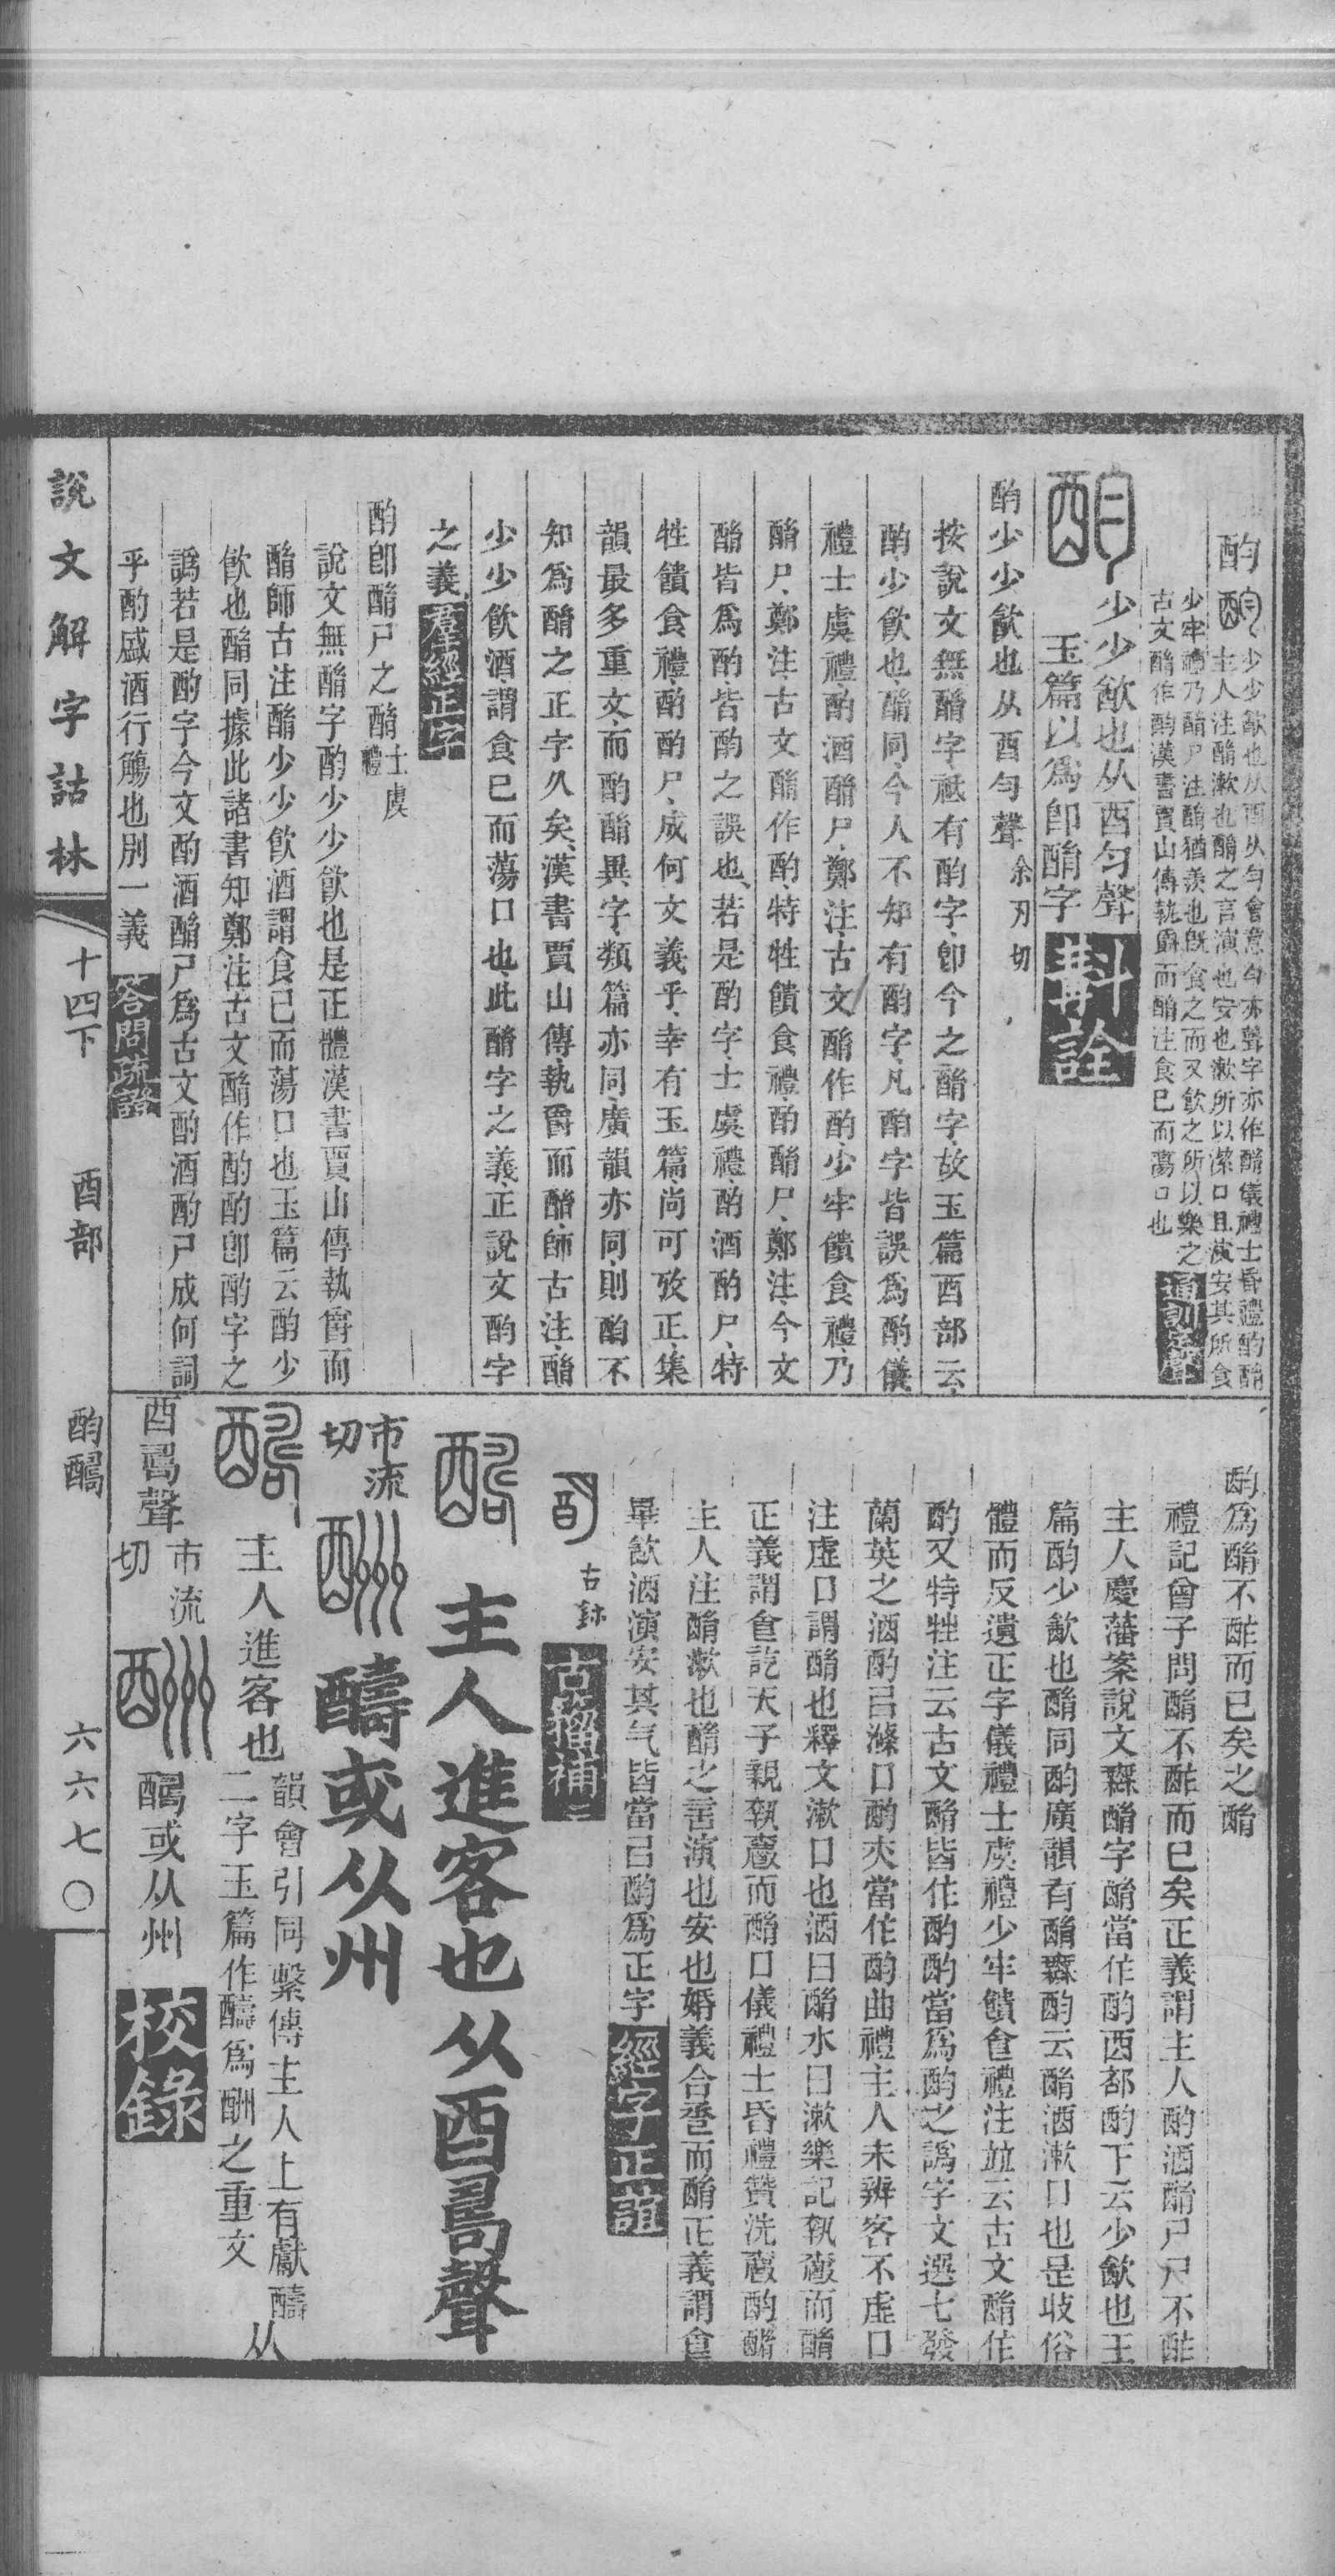 酳
少少㱃也从酉从勻會意勻亦聲字亦作酳儀禮士昏禮酌酳
主人注酳漱也酳之言演也安也漱所以潔口且演安其所食
少牢禮乃酳尸注酳猶羨也旣食之而又飮之所以樂之
古文酳作酌漢書賈山傳執爵而酳注食已而蕩口也
通訓定聲
少少㱃也从酉勻聲
玉篇以爲卽酳字
斠詮
酌少少㱃也从酉勻聲余刃切
按說文無酳字祗有酌字卽今之酳字故玉篇酉部云
酌少飮也酳同今人不知有酌字凡酌字皆誤爲酌儀
禮士虞禮酌酒酳尸鄭注古文酳作酌少牢饋食禮乃
酳尸鄭注古文酳作酌特牲饋食禮酌酳尸鄭注今文
酳皆爲酌皆酌之誤也若是酌字士虞禮酌酒酌尸特
牲饋食禮酌酌尸成何文義乎幸有玉篇尚可攷正集
韻最多重文而酌酳異字類篇亦同廣韻亦同則酌不
知爲酳之正字久矣漢書賈山傳執爵而酳師古注酳
少少飮酒謂食已而蕩口也此酳字之義正說文酌字
之義
羣經正字
酌卽酳尸之酳士虞禮
說文無酳字酌少少飮也是正體漢書賈山傳執爵而
酳師古注酳少少飮酒謂食已而蕩口也玉篇云酌少
飮也酳同據此諸書知鄭注古文酳作酌酌卽酌字之
譌若是酌字今文酌酒酳尸爲古文酌酒酌尸成何詞
乎酌盛酒行觴也別一義
答問疏證
酌爲酳不酢而已矣之酳
禮記曾子問酳不酢而已矣正義謂主人酌酒酳尸尸不酢
主人慶藩案說文無酳字酳當作酌酉部酌下云少㱃也王
篇酌少㱃也酳同酌廣韻有酳無酌云酳酒漱口也是歧俗
體而反遺正字儀禮士虞禮少牢饋食禮注竝云古文酳作
酌又特牲注云古文酳皆作酌酌當爲酌之譌字文選七發
蘭英之酒酌㠯滌口酌亦當作酌曲禮主人未辨客不虛口
注虛口謂酳也釋文漱口也酒曰酳水曰漱樂記執爵而酳
正義謂食訖天子親執爵而酳口儀禮士昏禮贊洗爵酌酳
主人注酳漱也酳之言演也安也婚義合卺而酳正義謂食
畢飮酒演安其气皆當㠯酌爲正字
經字正誼
古鉨
古籀補
主人進客也从酉𠷎聲
市流切
醻或从州
主人進客也
韻會引同繫傳主人上有獻醻
二字玉篇作醻爲酬之重文
从
酉𠷎聲市流切
醻或从州
校錄
說文解字詁林
十四下
酉部
酌醻
六六七〇